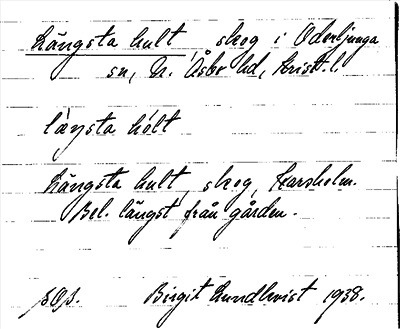 Längsta hult, skog i Oderljunga
sn, N. Åsbo hd, Krist. l.
Längsta hult, skog, Karsholm.
Bel. längst från gården.
Birgit Lundkvist 1938.